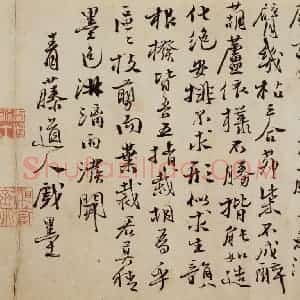 臂幾枯三合茆柴不成醉
葫蘆依樣不勝揩能如造
化絕安排不求形似求生韻
根撥皆吾五指栽胡為乎
區〻枝剪而葉裁君莫猜
墨色淋漓雨撥開
青藤道人戲墨